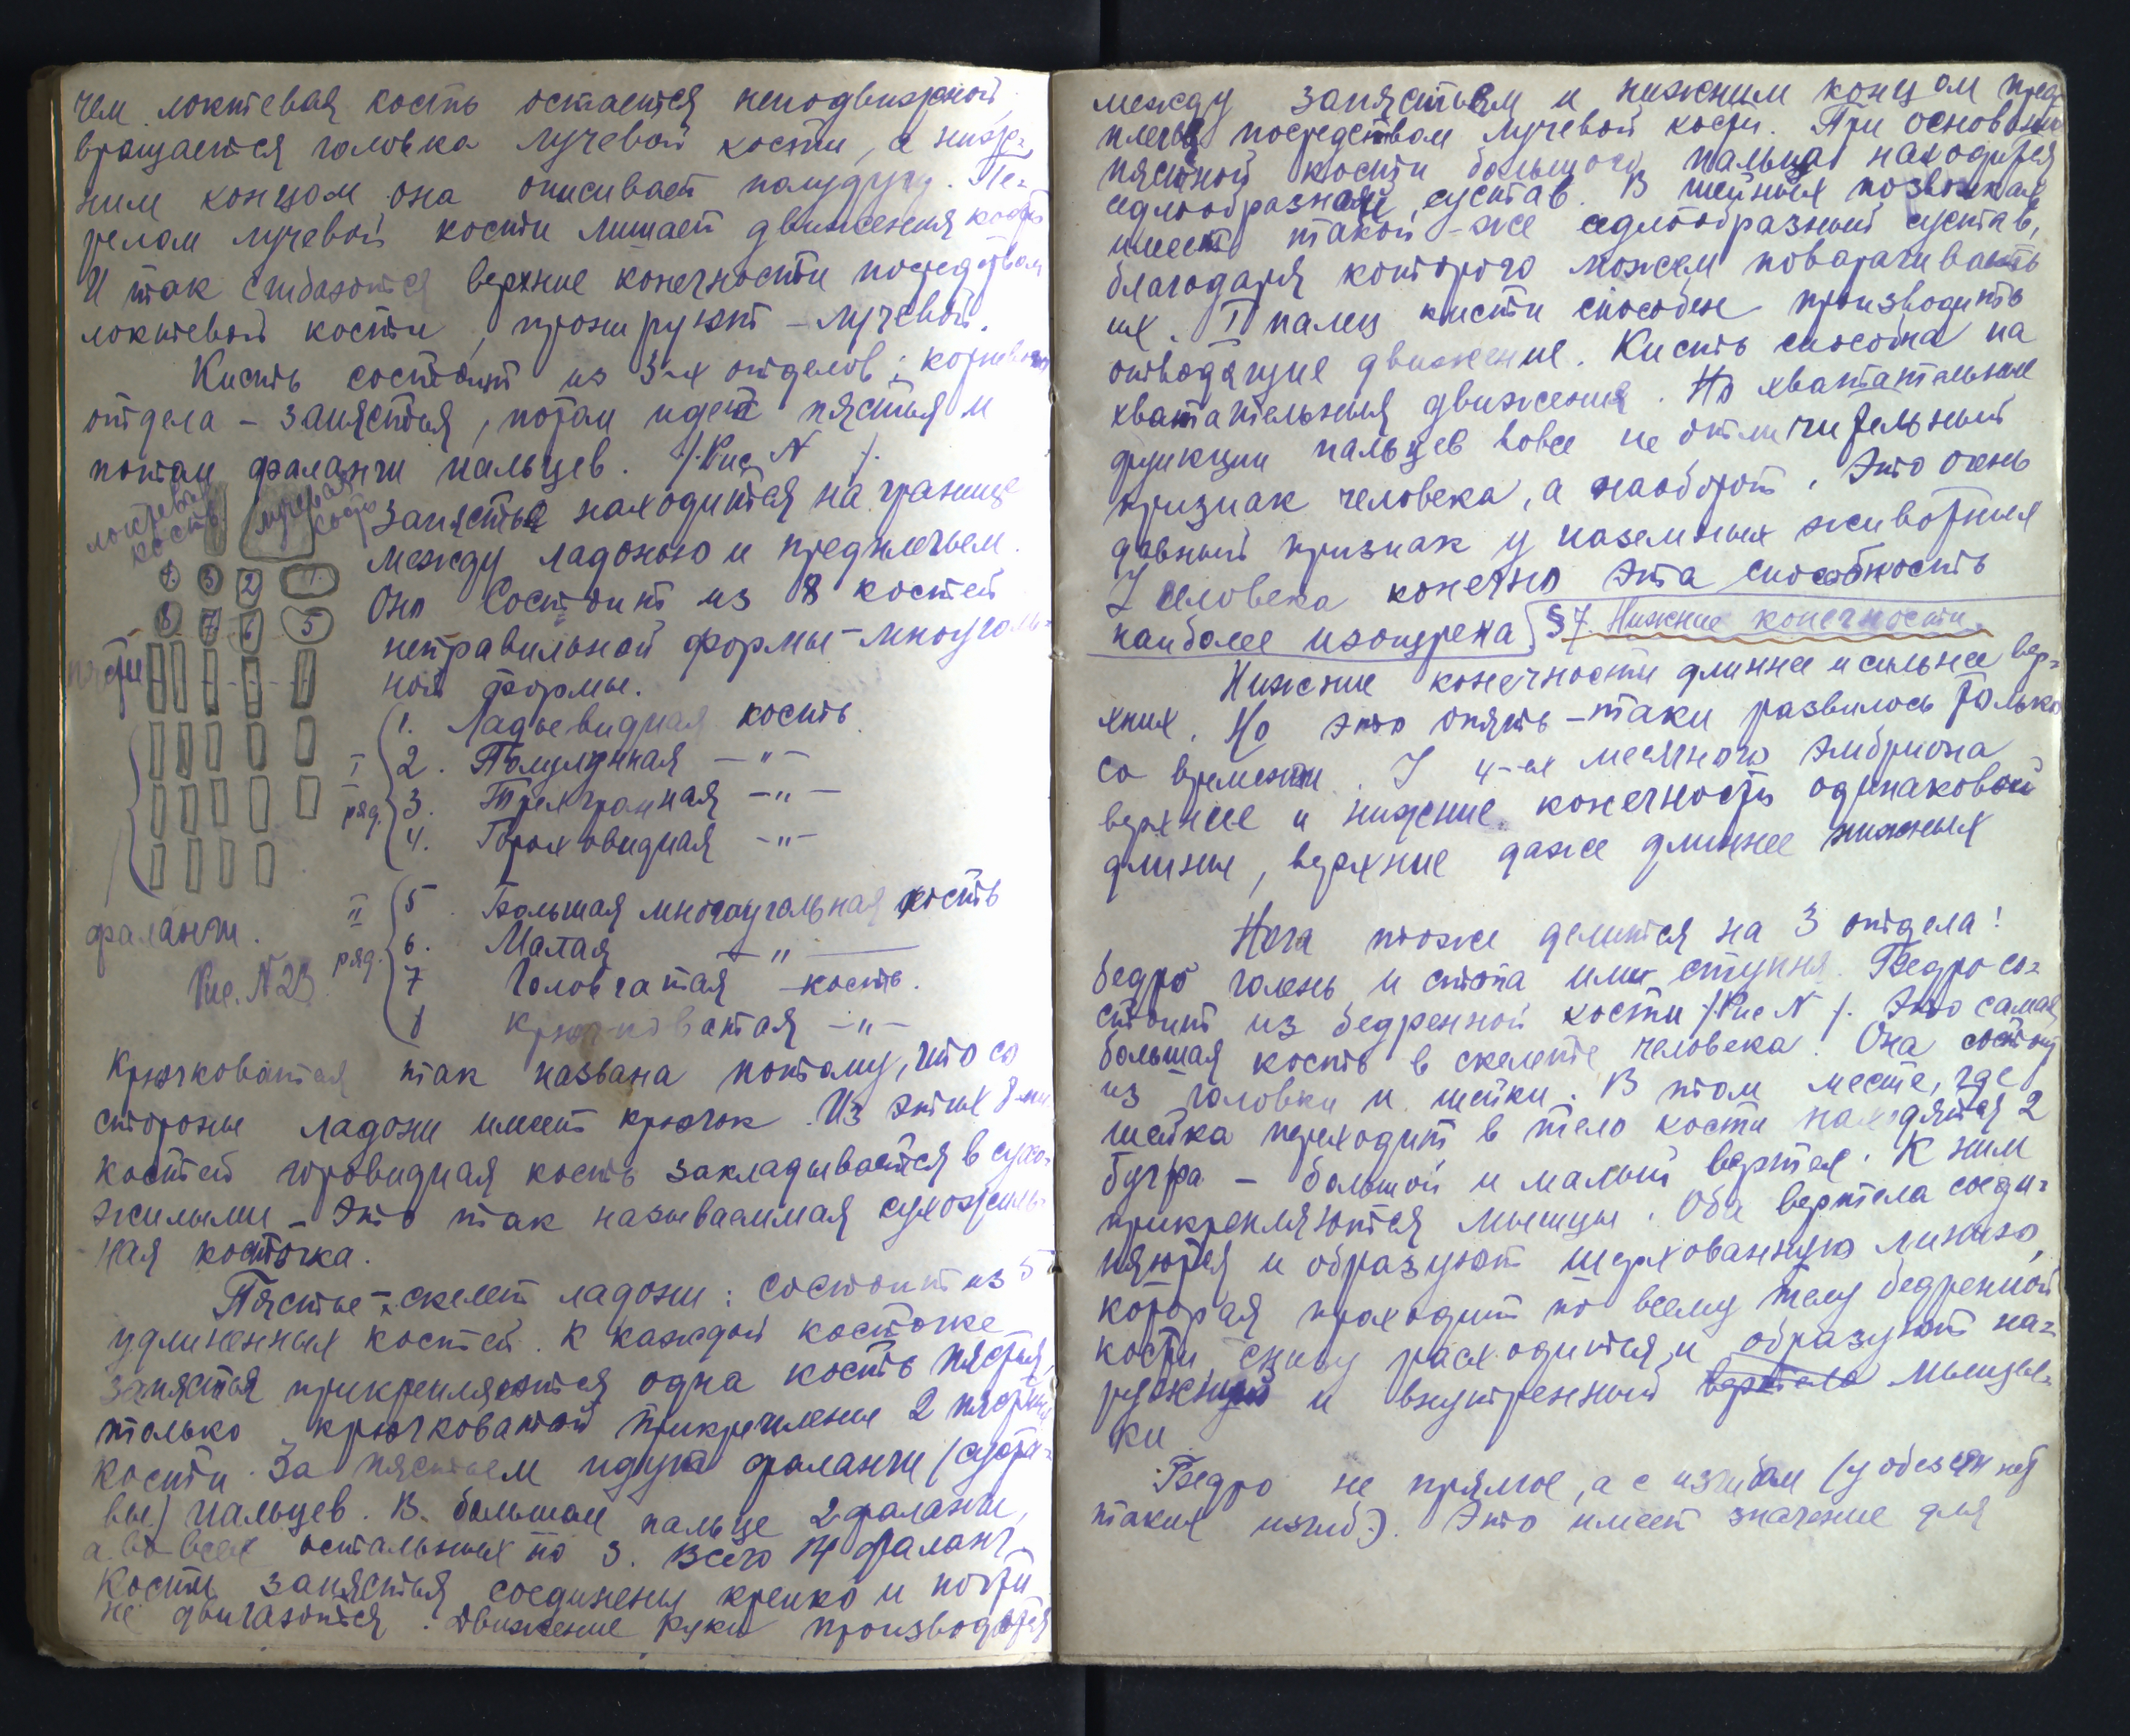 чем локтевая кость остается неподвижной,
вращается головка лучевой кости, а ниж-
ним концом она описывает полудугу. Пе-
релом лучевой кости лишает движения кость
И так сгибаются верхние конечности посредством
локтевой кости, пронируют - лучевой.
Кисть состоит из 3-х отделов:
отдела - запястья, потом идет пястья и
потом фаланги пальцев. /Рис N /.
локтевая
кость
лучевая
кость
Запястье находится на границе
между ладонью и предплечьем.
Оно состоит из 8 костей
неправильной формы - многуголь-
ной формы.
4. 3 2 1.
8 7 6 5
пясть
фаланги.
Рис. N 23
I
ряд.
1. Ладьевидная кость.
2. Полулунная —"—
3. Трехгранная —"—
4. Гороховидная —"—
II
ряд.
5. Большая многоугольная кость
6. Малая —"—
7 Головчатая —кость.
8 Крючковатая —"—
Крючковатая так названа потому, что со
стороны ладони имеет крючок. Из этих 8-ми
костей горовидная кость закладывается в сухо-
жилыми - это так называеимая сухожиль-
ная косточка.
Пястье - скелет ладони: состоит из 5
удлиненных костей. К каждой косточке
запястья прикрепляются одна кость пястья,
только крючковатой прикреплены 2 пястных
кости. За пястьем идут фаланги /суста-
вы/ пальцев. В большом пальце 2 фаланги,
а во всех остальных по 3. Всего 14 фаланг.
Кости запястья соединены крепко и почти
не двигаются. Движение руки производятся
между запястьем и нижним концом пред-
плечья посредством лучевой кости. При основании
пястной кости большого пальца находится
седлообразный сустав. В шейных позвонках
имеет такой-же седлообразный сустав,
благодаря которого можем поварачивать
их. I палец кисти способен производить
отводящие движение. Кисть способна на
хватательныя движения. Но хватательные
функции пальцев вовсе не отличительный
признак человека, а наоборот. Это очень
давный признак у наземных животных
У человека конечно эта способность
наиболее изощрена. §7. Нижние конечности.
Нижние конечности длиннее и сильнее вер-
хних. Но это опять-таки развилось только
со временем. У 4-ех месячного эмбриона
верхние и нижние конечности одинаковой
длины, верхние даже длиннее нижных
Нога тоже делится на 3 отдела!
бедро голень и стопа или ступня. Бедро со-
стоит из бедренной кости /Рис N /. Это самая
большая кость в скелете человека. Она состоит
из головки и шейки. В том месте, где
шейка переходит в тело кости находятся 2
бугра - большой и малый вертел. К ним
прикрепляются мышцы. Оба вертела соеди-
няются и образуют шерхованную линию,
которая проходит по всему телу бедренной
кости, снизу расходится и образуют на-
ружный и внутренный вертела мыщел-
ки.
Бедро не прямое, а с изгибом (у обезян нет
таких изгиб.). Это имеет значение для